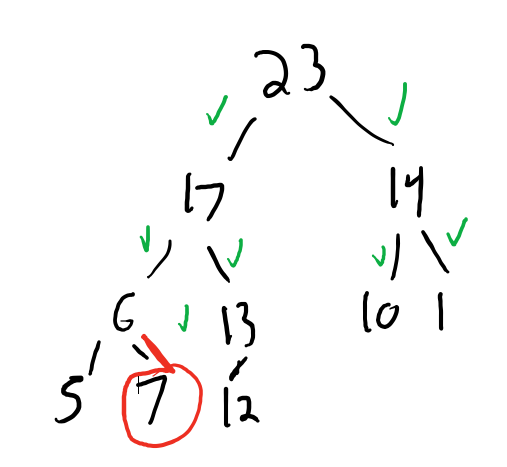 23
17 14
6 13 10 1
5 7 12